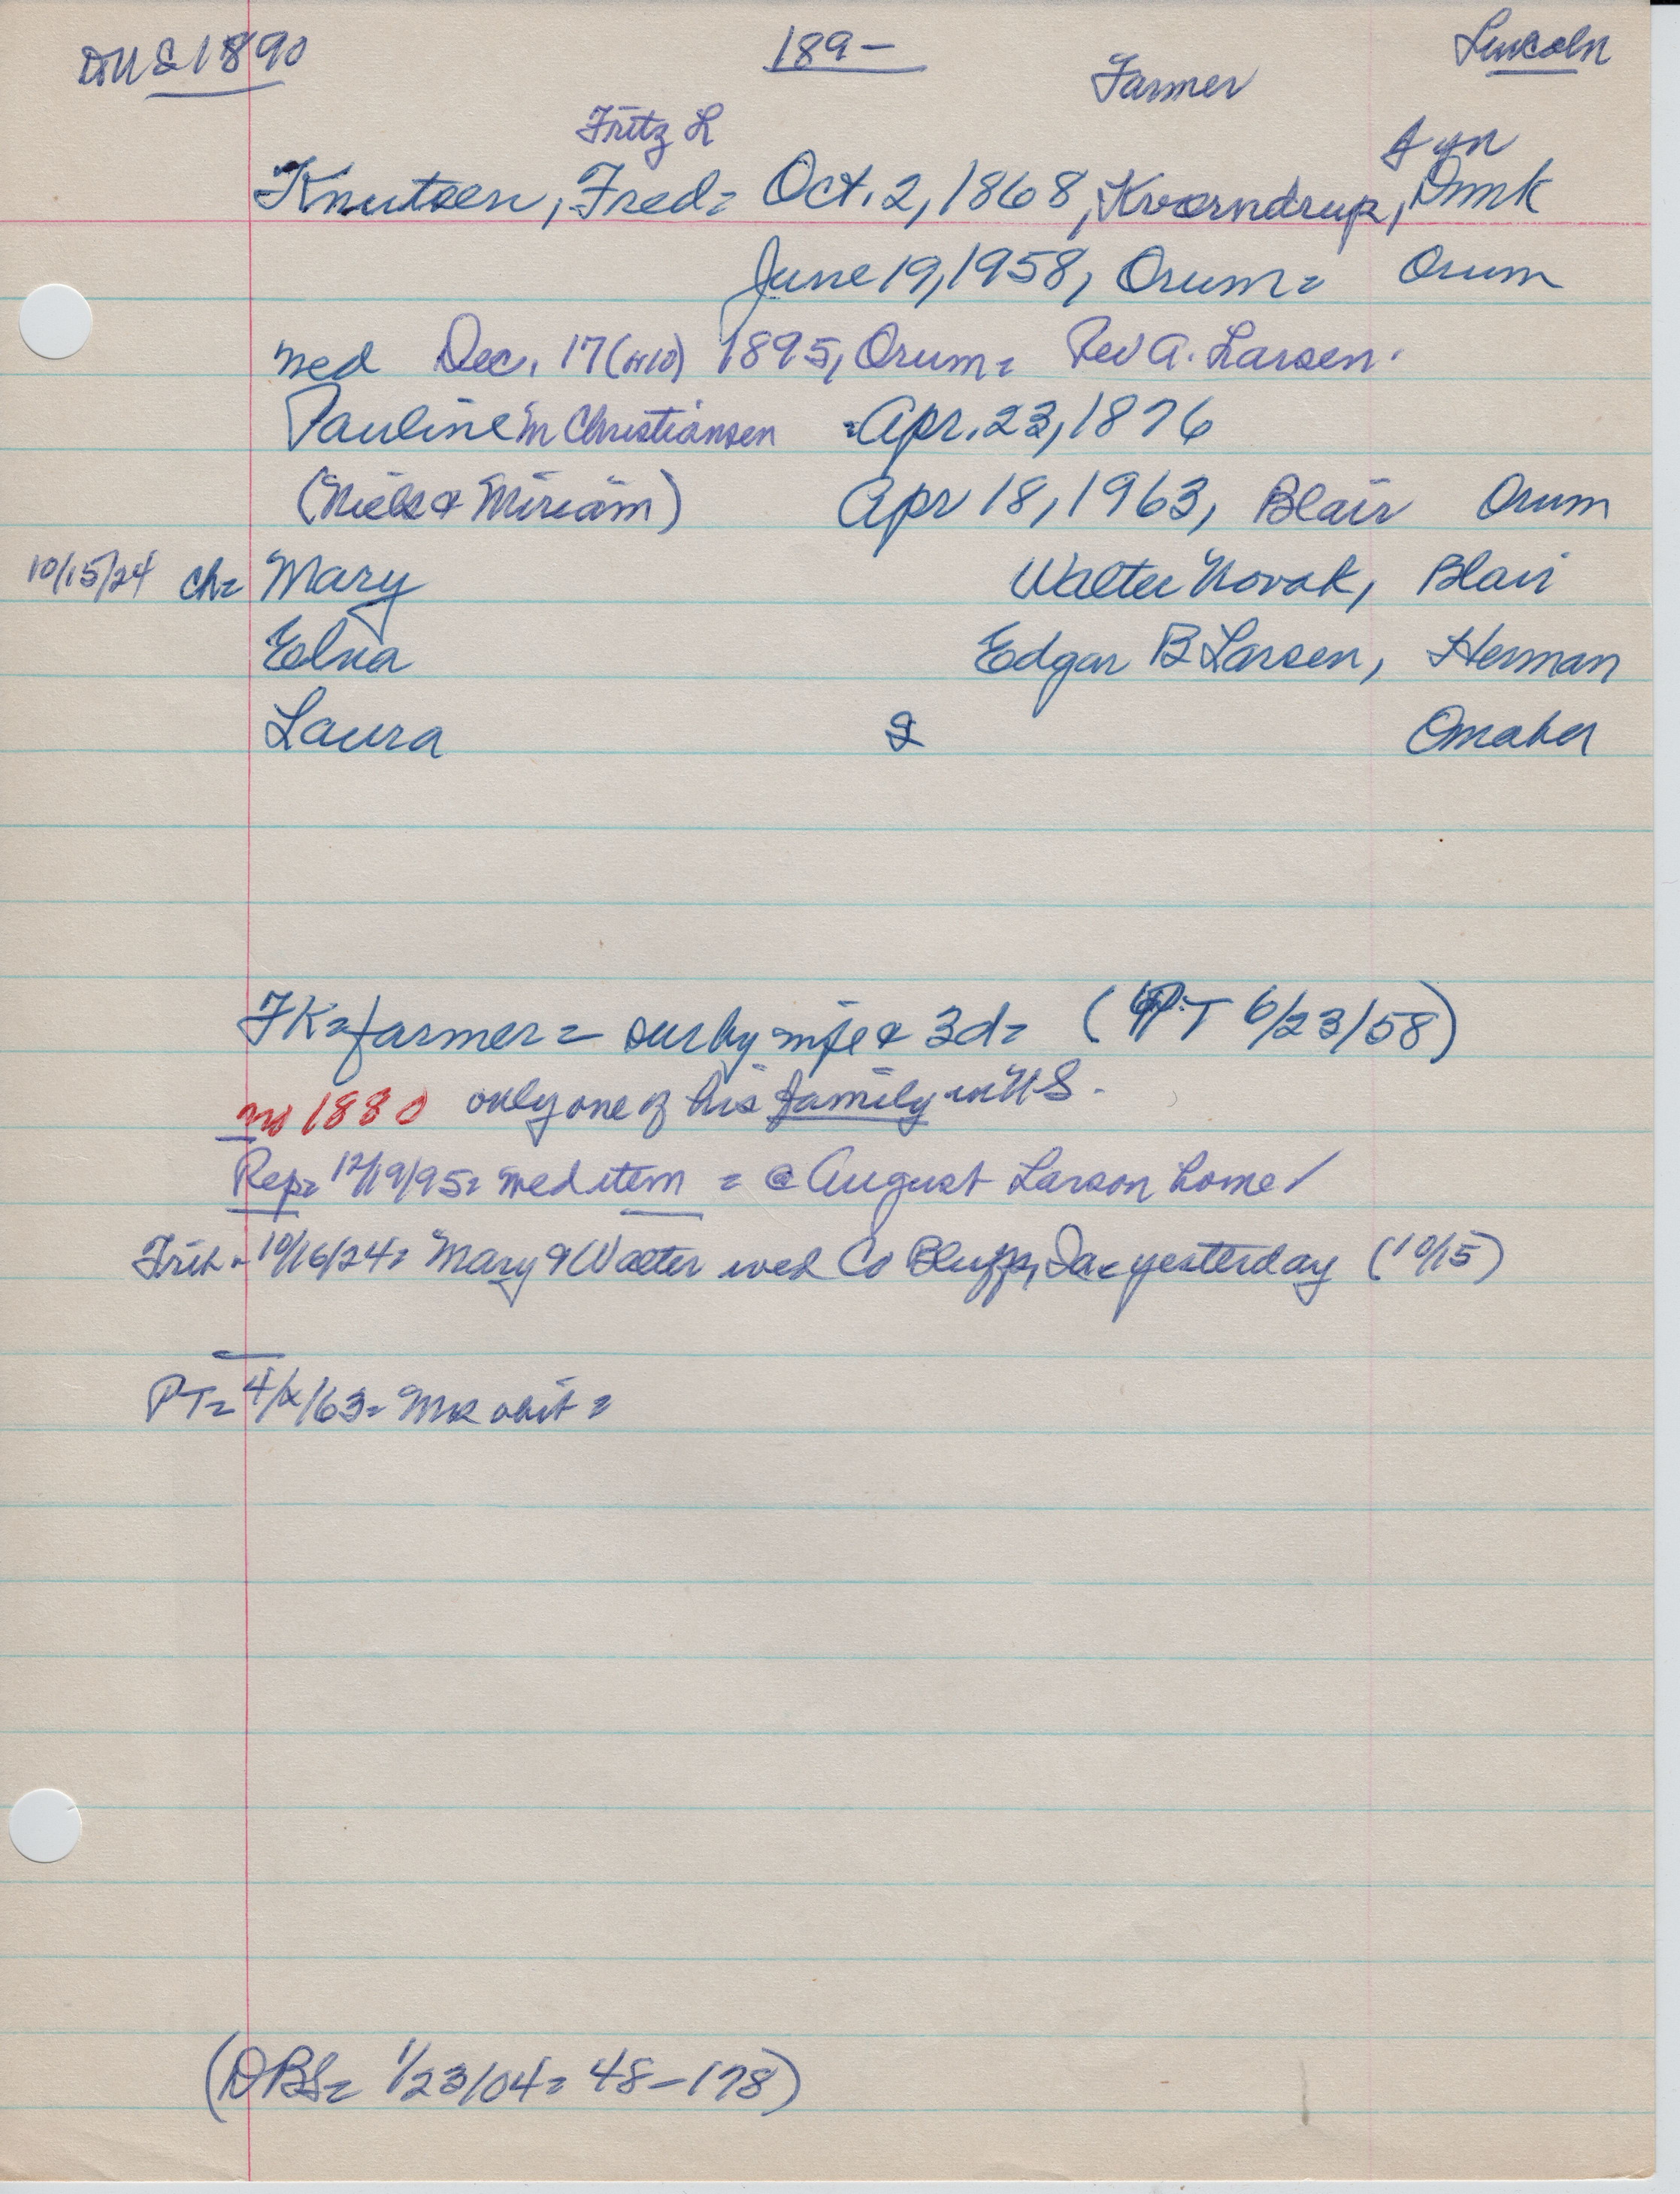 DM&1890 189— Lincoln
Farmer
Fritz L Fyn
Knutsen, Fred= Oct. 2, 1868, Kværndrup, Dmk
June 19, 1958, Orum= Orum
wed Dec. 17 (or 10) 1895, Orum= Rev A. Larsen.
Pauline M Christiansen =Apr. 23, 1876
(Niels & Miriam) Apr 18, 1963, Blair Orum
10/15/24 ch= Mary Walter Novak, Blair
Elna Edgar B Larsen, Herman
Laura Omaha
FK=farmer= sur by wife & 3d= (PT 6/23/58)
no 1880 only one of his family in U.S.
Rep= 12/19/95= wed item = @ August Larson home/
10/16/24= Mary & Walter wed Co Bluffs, Ia= yesterday (10/15)
PT= 4/x/63= obit=
(DBS= 1/23/04= 48-178)